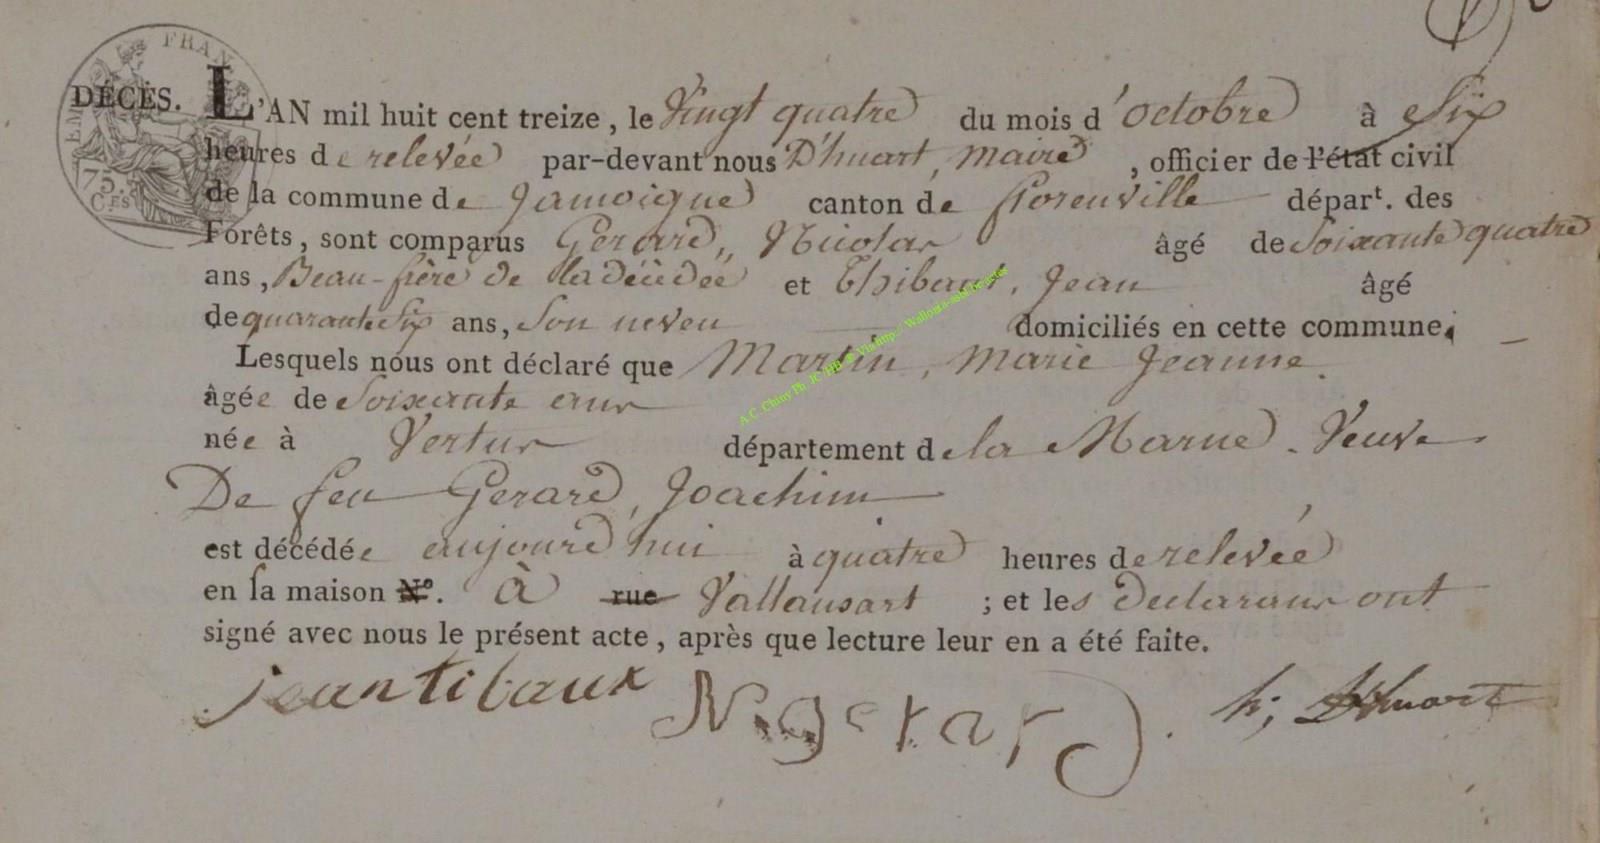 DÉCÈS. L'AN mil huit cent treize, le Vingt quatre du mois d'octobre à Six
heures de relevée par-devant nous D'huart, maire, officier de l'état civil
de la commune de Jamoigne canton de florenville départ. des
Forêts, sont comparus Gerard,, Nicolas âgé de Soixante quatre
ans, Beau-frère de la décédée et Thibaut, Jean âgé
de quarante Six ans, Son neveu domiciliés en cette commune.
Lesquels nous ont déclaré que Martin, Marie Jeanne
âgée de Soixante ans
née à Vertus département de la Marne. Veuve
De feu Gerard, Joachim
est décédée aujourd'hui à quatre heures de relevée
en sa maison N°. à rue Vallansart ; et les declarans ont
signé avec nous le présent acte, après que lecture leur en a été faite.
jean tibaux N. gerard. h; D'huart
FRAN
EM
75.
C.ES
A.C. Chiny Ph. JC HB © Via http:// Wallonia-asbl.be actes